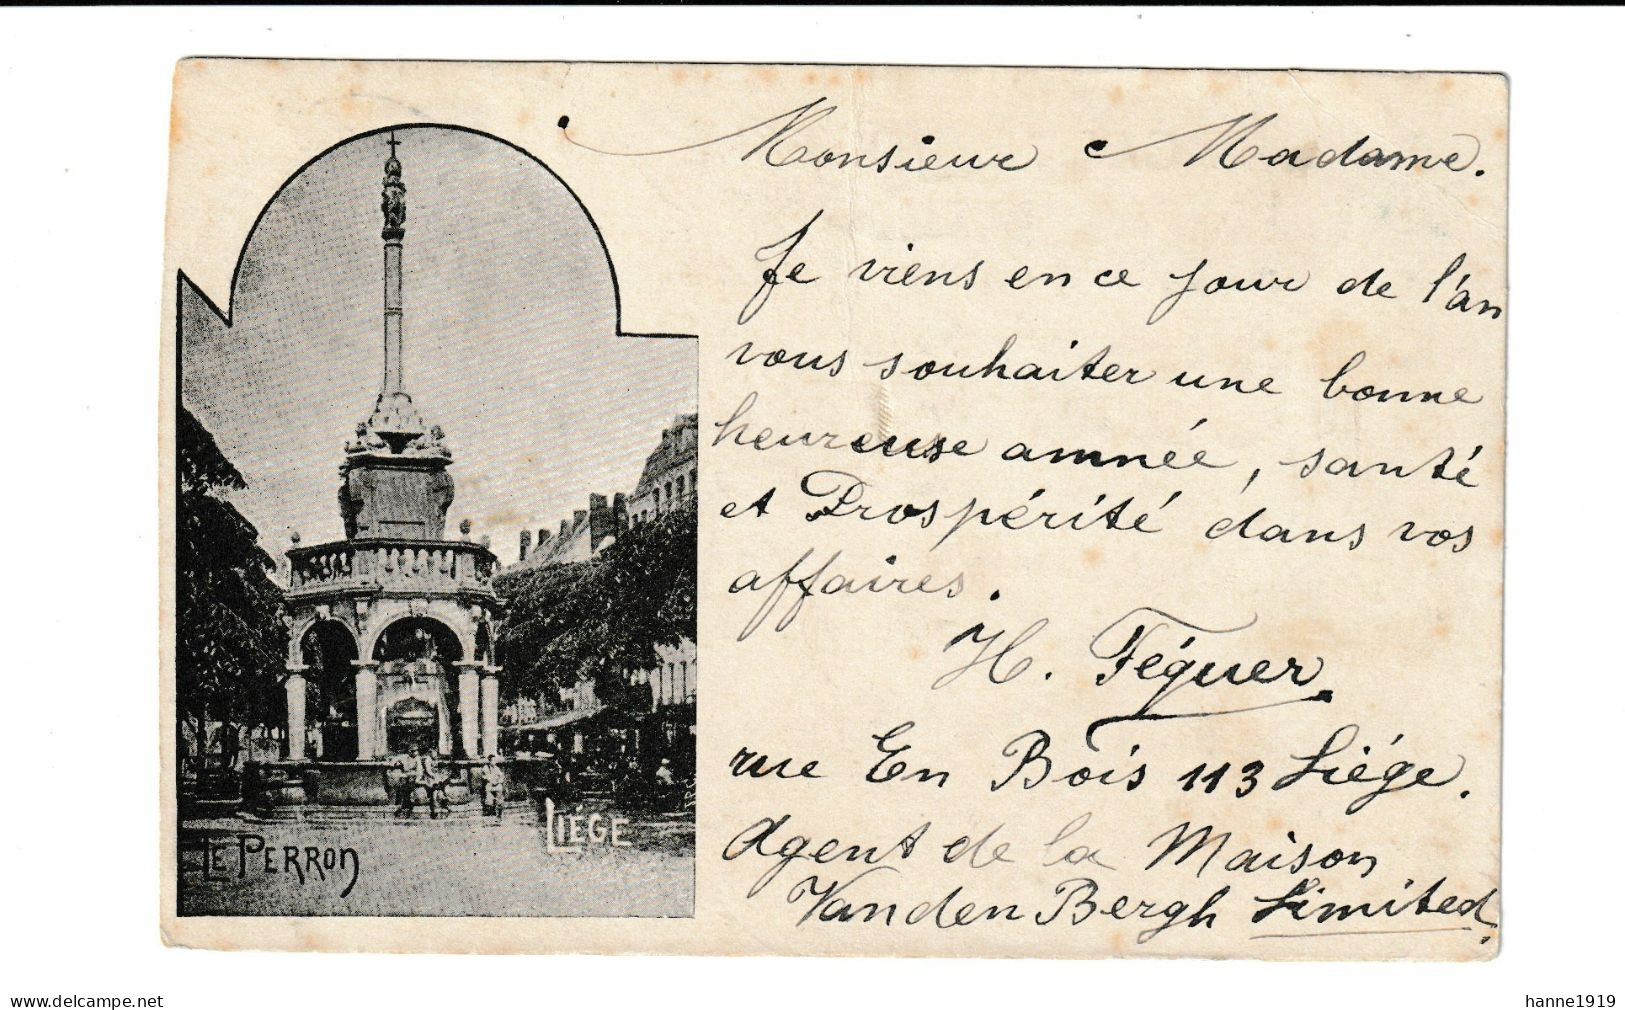 Monsieur Madame.
Je viens en ce jour de l'an
vous souhaiter une bonne
heureuse amnée, santé
et Prospérité dans vos
affaires.
H. Féguer
rue En Bois 113 Liége.
Agent de la Maison
Vanden Bergh Limited.
LIÉGE
LE PERRON
www.delcampe.net
hanne1919